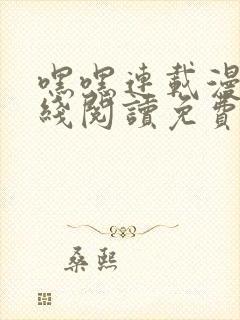 嘿嘿連載漫
綫閱讀免費
桑熙